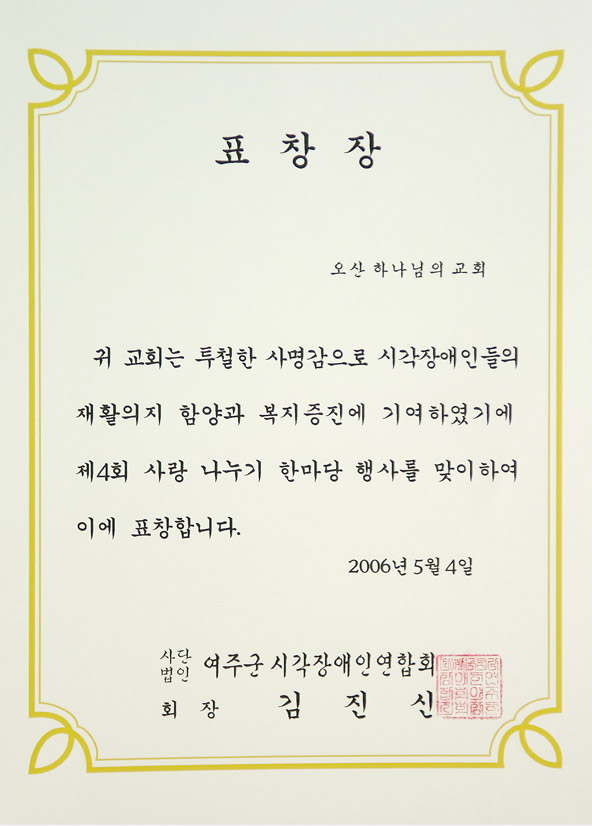 표 창 장
오산 하나님의 교회
귀 교회는 투철한 사명감으로 시각장애인들의
재활의지 함양과 복지증진에 기여하였기에
제4회 사랑 나누기 한마당 행사를 맞이하여
이에 표창합니다.
2006년 5월 4일
사단법인 여주군 시각장애인연합회
회 장 김 진 신